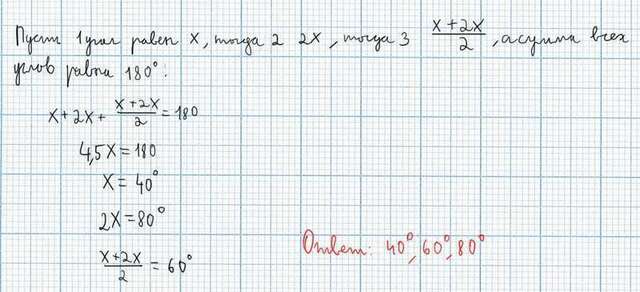 Пусть 1 угол равен x, тогда 2 2x, тогда 3 (x+2x)/2, а сумма всех
углов равна 180°.
x+2x+(x+2x)/2=180
4,5x=180
x=40°
2x=80°
(x+2x)/2=60°
Ответ: 40°, 60°, 80°